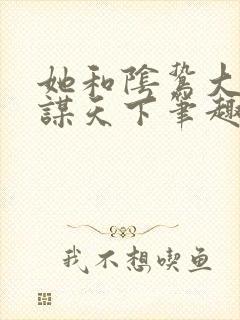 她和陰鷙大
謀天下筆趣
我不想喫鱼